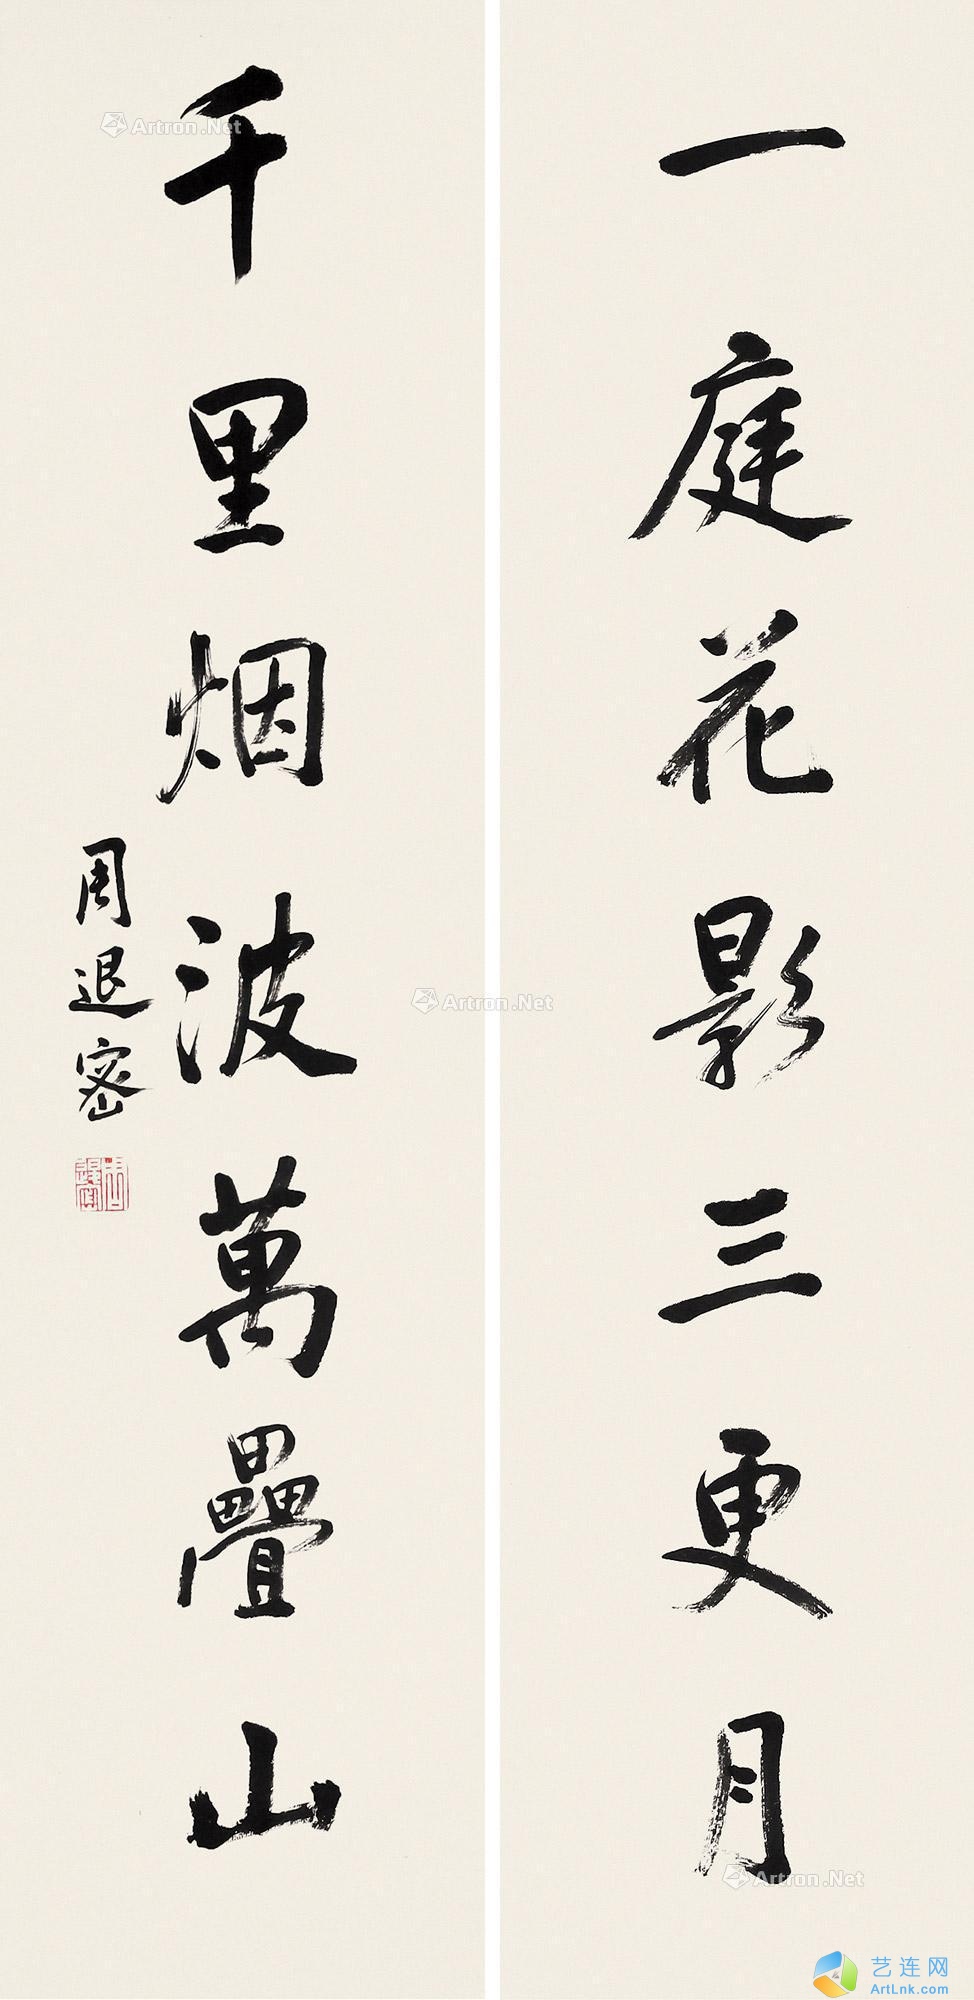 一庭花影三更月
千里烟波萬疊山
周退密
Artron.Net
Artron.Net
Artron.Net
艺连网
ArtLnk.com